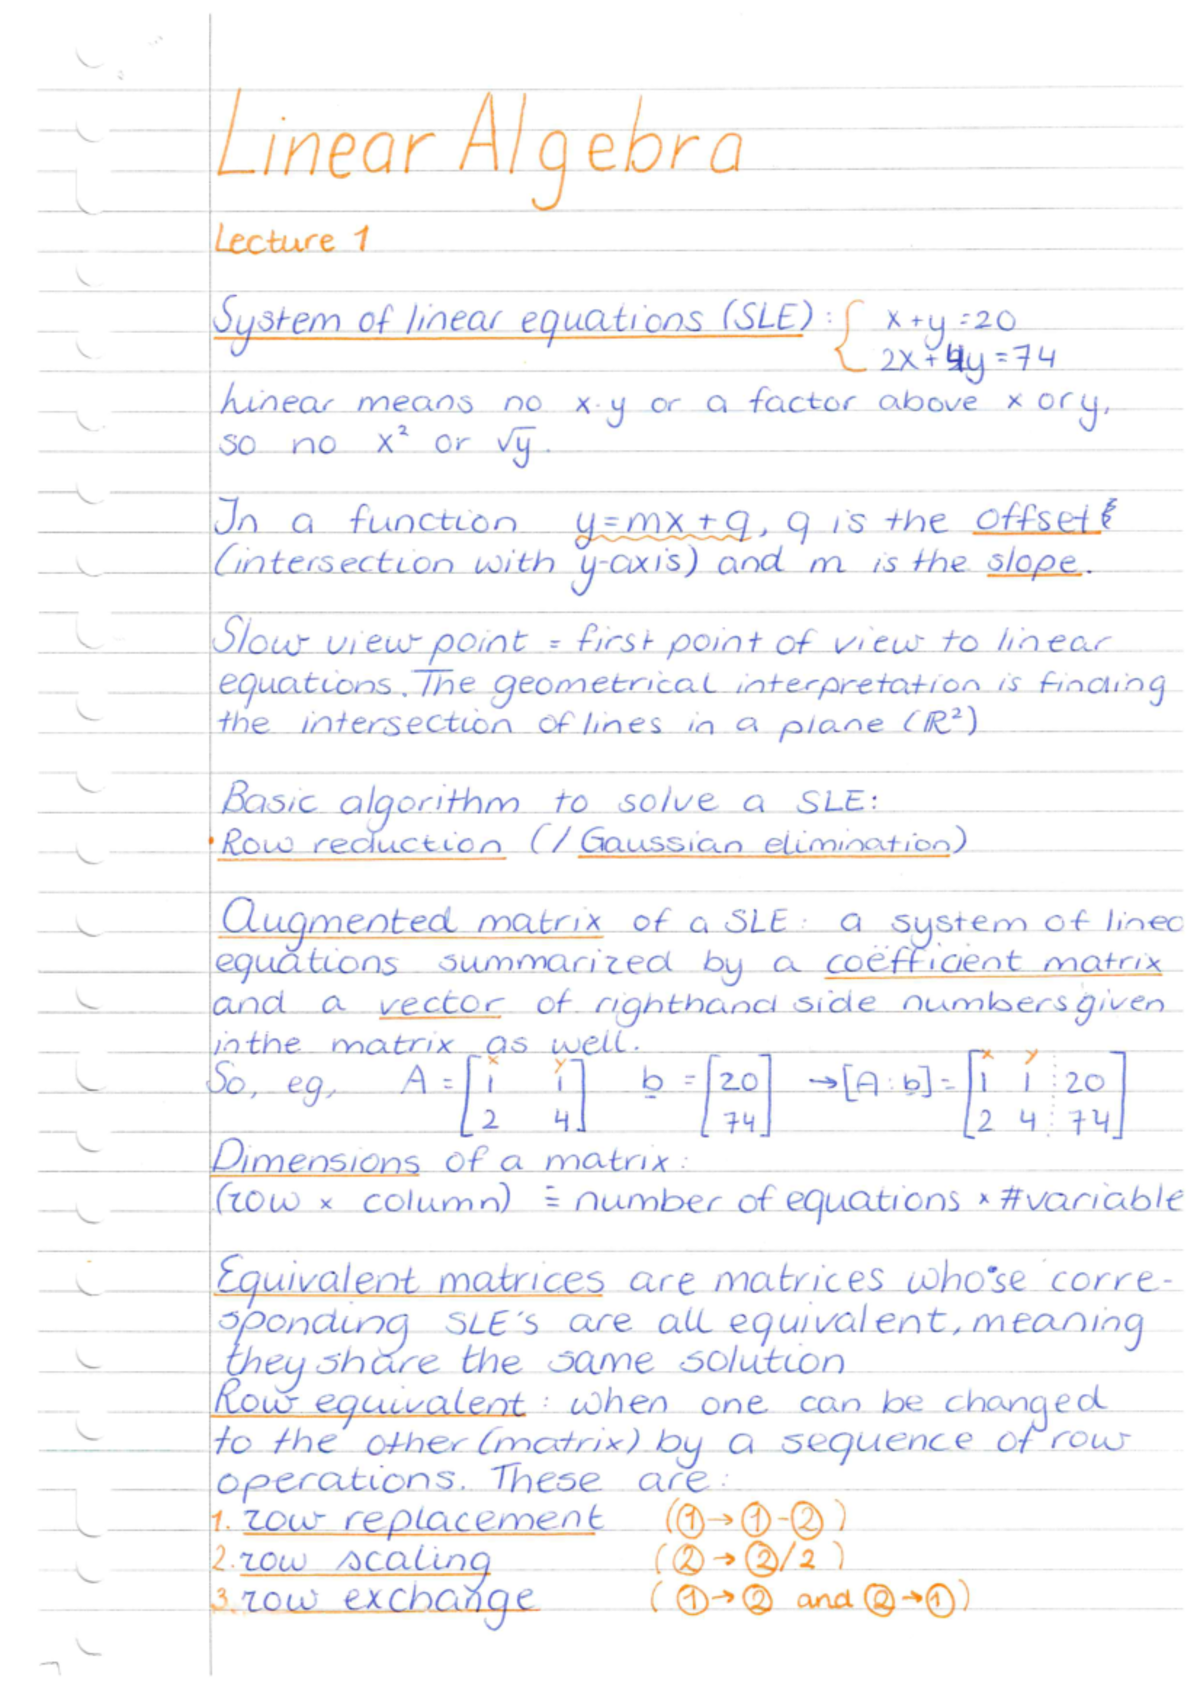 Linear Algebra
Lecture 1
System of linear equations (SLE) : { x + y = 20
2x + 4y = 74
Linear means no x·y or a factor above x or y,
so no x² or √y.
In a function y=mx+q, q is the offset
(intersection with y-axis) and m is the slope.
Slow view point = first point of view to linear
equations. The geometrical interpretation is finding
the intersection of lines in a plane (ℝ²)
Basic algorithm to solve a SLE:
• Row reduction (/ Gaussian elimination)
Augmented matrix of a SLE: a system of linea
equations summarized by a coëfficient matrix
and a vector of righthand side numbers given
in the matrix as well.
x y x y
So, eg, A = [1 1 b = [20] → [A : b] = [1 1 : 20]
2 4] [74] [2 4 : 74]
Dimensions of a matrix:
(row × column) = number of equations × #variable
Equivalent matrices are matrices whose corre-
sponding SLE's are all equivalent, meaning
they share the same solution
Row equivalent : when one can be changed
to the other (matrix) by a sequence of row
operations. These are:
1. row replacement (① → ① - ②)
2. row scaling (② → ②/2)
3. row exchange (① → ② and ② → ①)